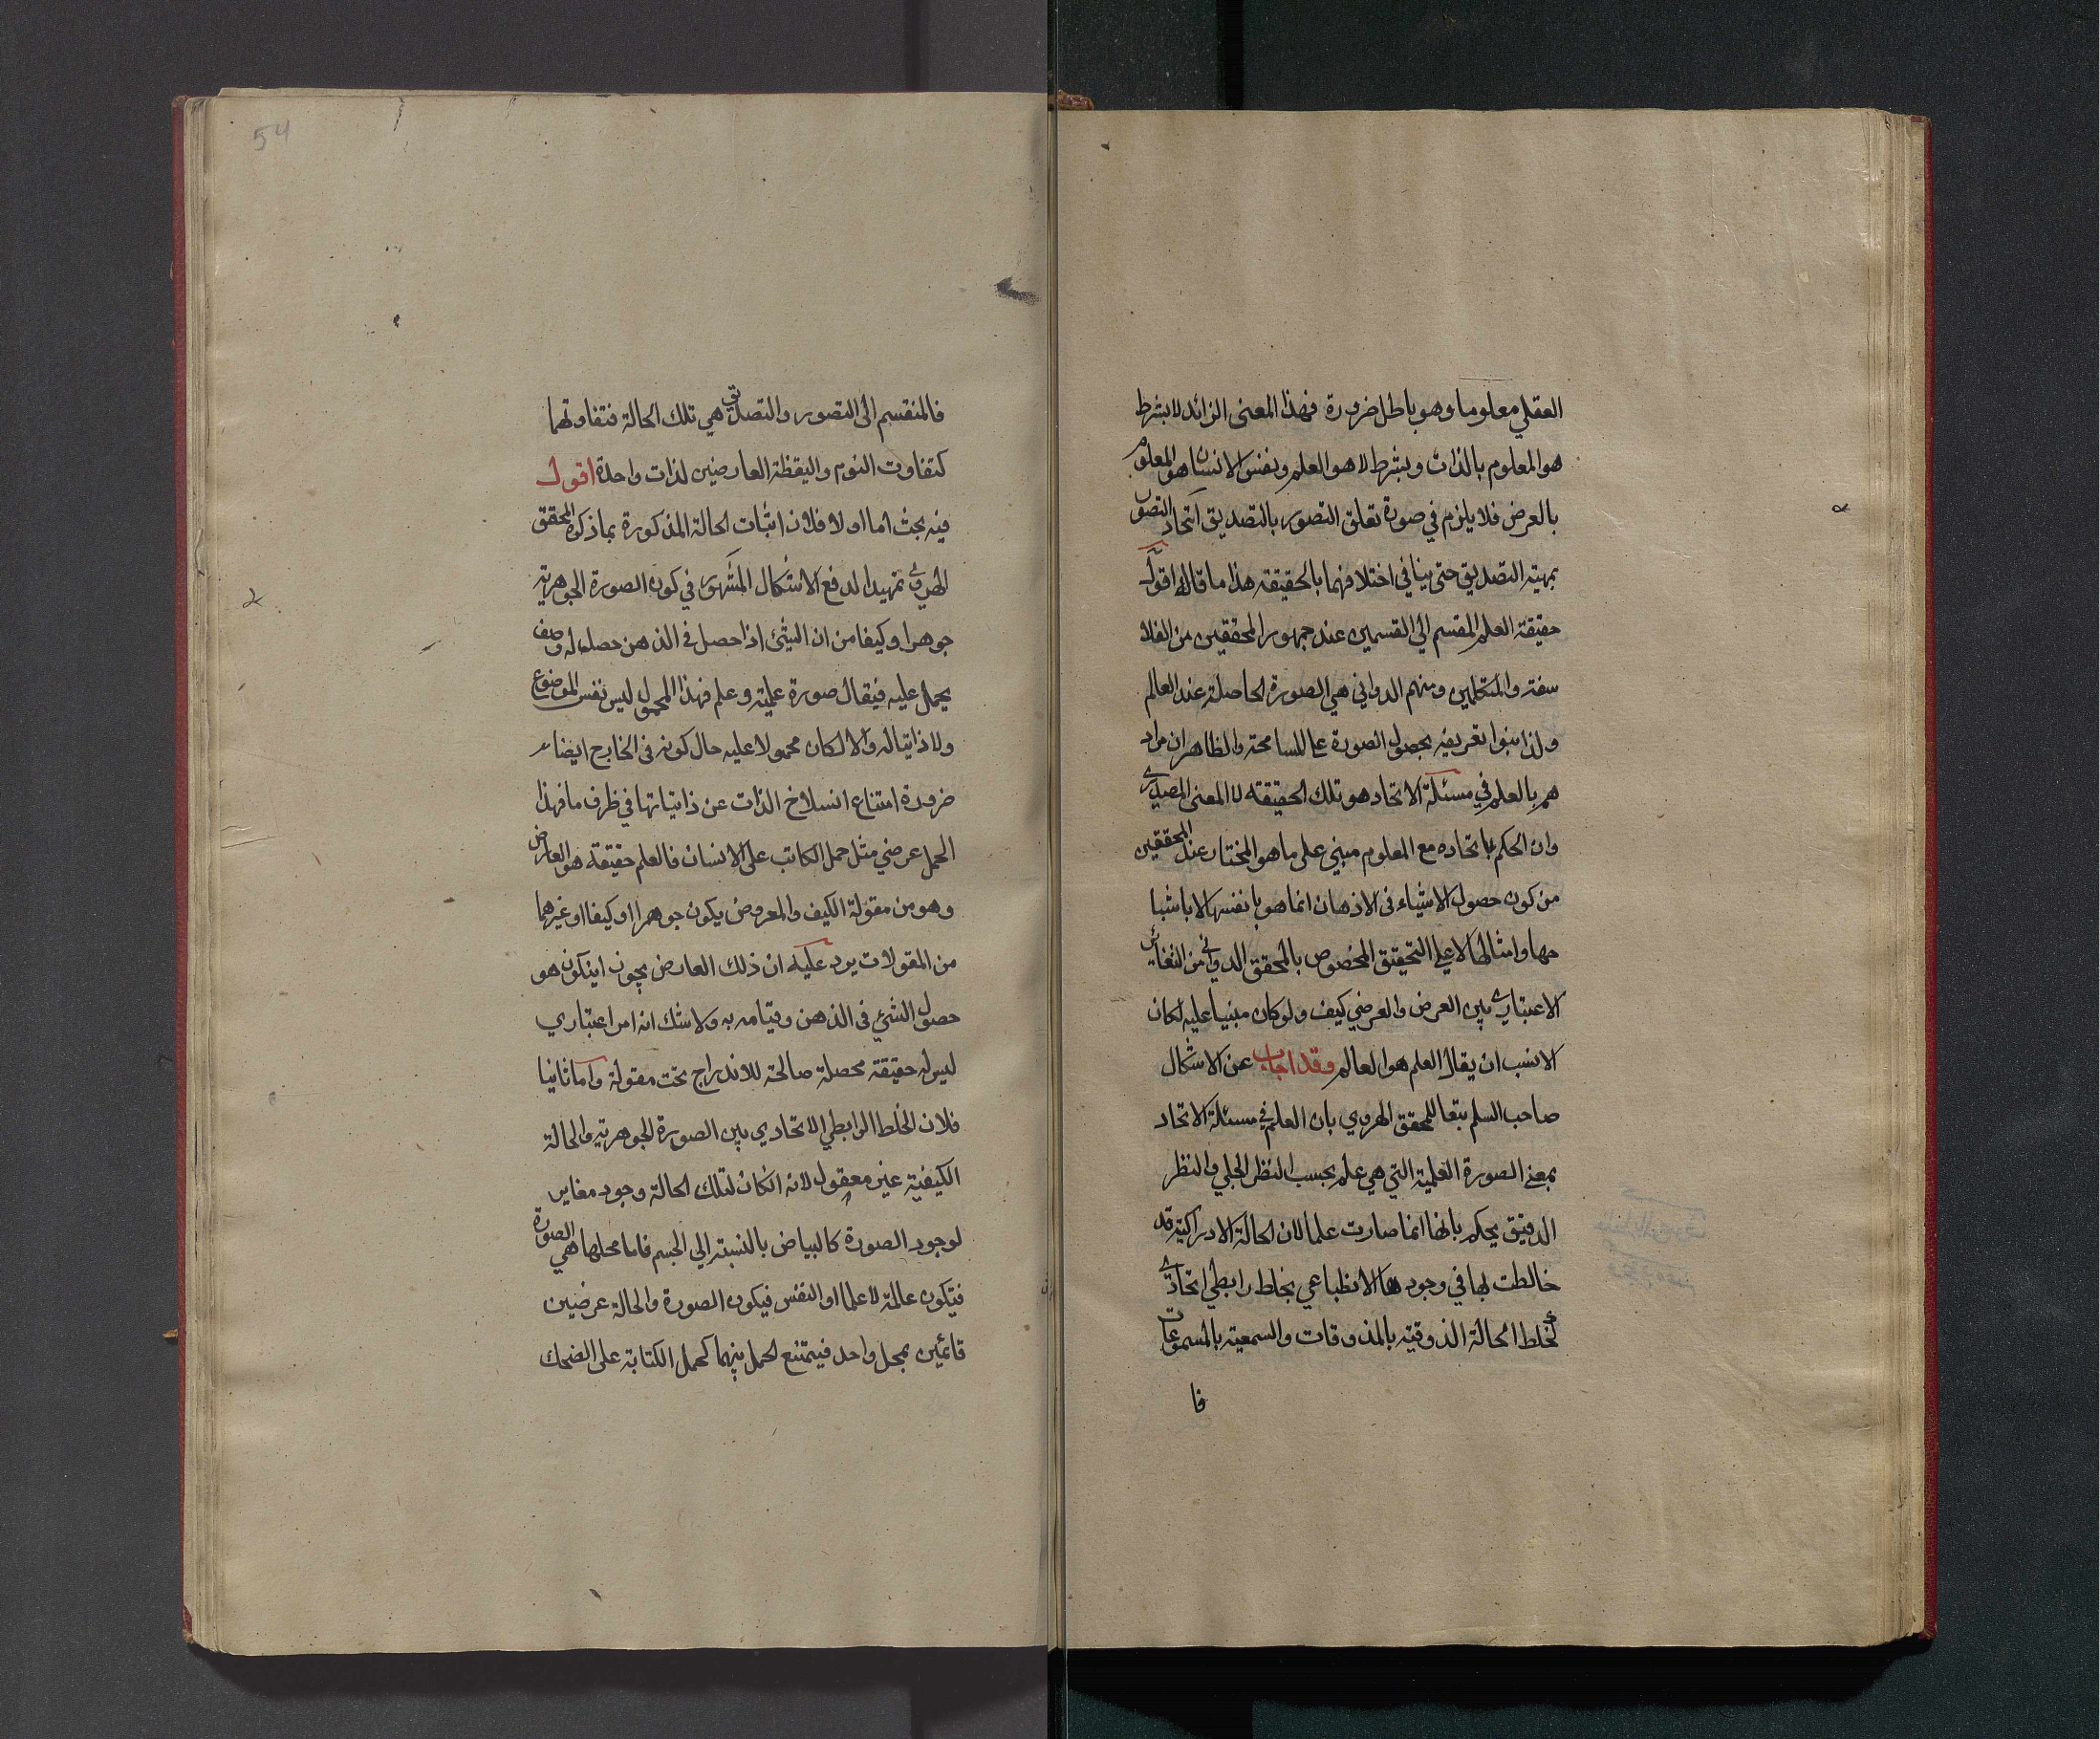 العقلي معلوما وهو باطل ضرورة فهذا المعنى الزائد لا بشرط
هو المعلوم بالذات وبشرط لا هو العلم ونفس الانسان هو المعلوم
بالعرض فلا يلزم في صورة تعلق التصور بالتصديق اتحاد التصور
بمهية التصديق حتى ينافي اختلافهما بالحقيقة هذا ما قاله اقول
حقيقة العلم المقسم الي القسمين عند جمهور المحققين من الفلا
سفة والمتكلمين ومنهم الدواني هي الصورة الحاصلة عند العالم
ولذا بنوا تعريفه بحصول الصورة علي المسامحة والظاهر ان مراد
هم بالعلم في مسئلة الاتحاد هو تلك الحقيقة لا المعنى المصدري
وان الحكم باتحاده مع المعلوم مبني على ما هو المختار عند المحققين
من كون حصول الاشياء في الاذهان انما هو بانفسها لا باشبا
حها وامثالها لا علي التحقيق المخصوص بالمحقق الدواني من التغاير
الاعتباري بين العرض والعرضي كيف ولو كان مبنيا عليه لكان
الانسب ان يقال العلم هو العالم وقد اجاب عن الاشكال
صاحب السلم تبعا للمحقق الهروي بان العلم في مسئلة الاتحاد
بمعنى الصورة العلمية التي هي علم بحسب النظر الجلي والنظر
الدقيق يحكم بانها انما صارت علما لان الحالة الادراكية قد
خالطت بها في وجودها الانطباعي بخلط رابطي اتحادي
كخلط الحالة الذوقية بالمذوقات والسمعية بالمسموعات
فا
54
فالمنقسم الى التصور والتصديق هي تلك الحالة فتفاوتهما
كتفاوت النوم واليقظة العارضين لذات واحدة اقول
فيه بحث اما اولا فلان اثبات الحالة المذكورة بما ذكره المحقق
الهروي تمهيدا لدفع الاشكال المشهور في كون الصورة الجوهرية
جوهرا وكيفا من ان الشئ اذا حصل في الذهن حصل له وصف
يحمل عليه فيقال صورة علمية وعلم فهذا المحمول ليس نفس الموضوع
ولا ذاتيا له والا لكان محمولا عليه حال كونه في الخارج ايضاء
ضرورة امتناع انسلاخ الذات عن ذاتياتها في ظرف ما فهذا
الحمل عرضي مثل حمل الكاتب على الانسان فالعلم حقيقة هو العارض
وهو من مقولة الكيف والمعروض يكون جوهرا او كيفا او غيرهما
من المقولات يرد عليه ان ذلك العارض يجوز ان يكون هو
حصول الشئ في الذهن وقيامه به ولا شك انه امر اعتباري
ليس له حقيقة محصلة صالحة للاندراج تحت مقولة واما ثانيا
فلان الخلط الرابطي الاتحادي بين الصورة الجوهرية والحالة
الكيفية غير معقول لانه ان كان لتلك الحالة وجود مغاير
لوجود الصورة كالبياض بالنسبة الى الجسم فاما محلها هي الصورة
فتكون عالمة لا علما او النفس فيكون الصورة والحالة عرضين
قائمين بمحل واحد فيمتنع الحمل بينهما كحمل الكتابة على الضحك